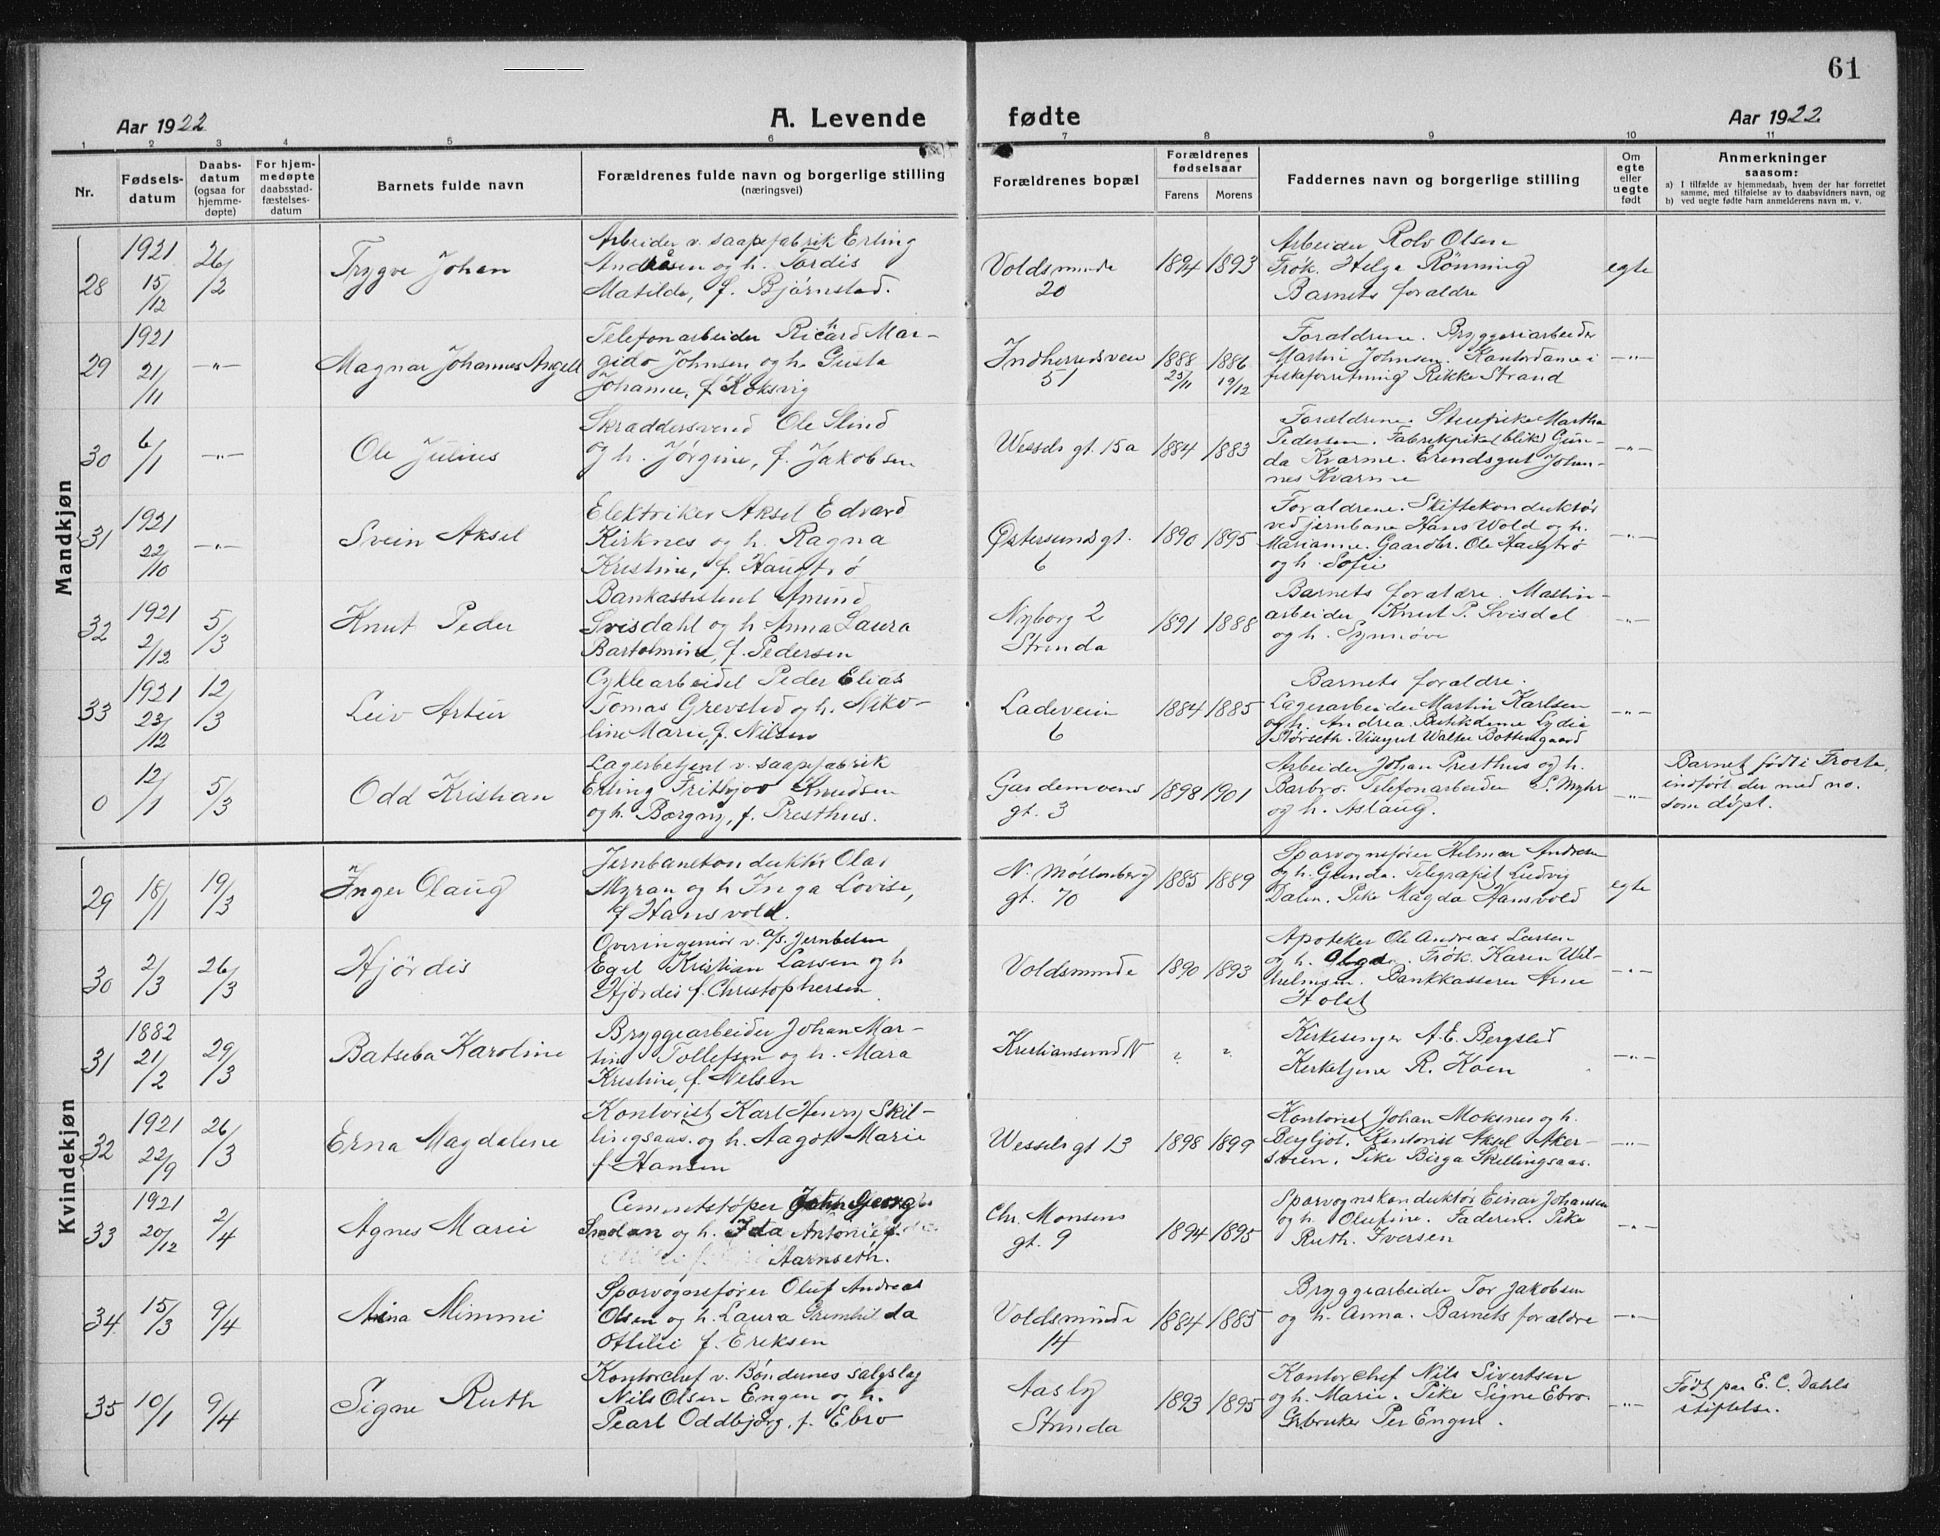 61
Aar 1922
A. Levende
fødte
Aar 1922
1 2 3 4 5 6 7 8 9 10 11
Nr.
Fødsels-
datum
Daabs-
datum
(ogsaa for
hjemme-
døpte)
For hjem-
medøpte
daabsstad-
fæstelses-
datum
Barnets fulde navn
Forældrenes fulde navn og borgerlige stilling
(næringsvei)
Forældrenes bopæl
Forældrenes
fødselsaar
Farens
Morens
Faddernes navn og borgerlige stilling
Om
egte
eller
uegte
født
Anmerkninger
saasom:
a) I tilfælde av hjemmedaab, hvem der har forrettet
samme, med tilføielse av to daabsvidners navn, og
b) ved uegte fødte barn anmelderens navn m. v.
Mandkjøn
28
1921
15/12
26/2
Trygve Johan
Arbeider v. saapefabrik Erling
Andråsen og h. Tordis
Matilde, f. Bjørnstad.
Voldsminde
20
1894
1893
Arbeider Rolv Olsen
Frøk. Helga Rønning
Barnets foraldre
egte
29
1921
21/11
-"-
Magnar Johannes Angell
Telefonarbeider Richard Mar-
gido Johnsen og h. Gusta
Johanne, f. Koksvig
Indherredsveien
51
1888
25/11
1886
19/12
Foraldrene. Bryggeriarbeider
Martin Johnsen. Kontordame i
fiskeforretning Rikke Strand
-"-
30
6/1
-"-
Ole Julius
Skraddersvend Ole Slind
og h. Jørgine, f. Jakobsen
Wessels gt. 15a
1884
1883
Forældrene. Stuepike Martha
Pedersen. Fabrikpike (blik) Gun-
da Kvarme. Erendsgut Johan-
nes Kvarme
-"-
31
1921
22/10
-"-
Svein Aksel
Elektriker Aksel Edvard
Kirknes og h. Ragna
Kristine, f. Haugtrø
Østersundsgt.
6
1890
1895
Foraldrene. Skiftekonduktør
ved jernbane Hans Wold og h.
Marianne. Gaardbr. Ole Haugtrø
og h. Sofie
-"-
32
1921
2/12
5/3
Knut Peder
Bankassistent Amund
Svisdahl og h. Anna Laura
Bartolmine, f. Pedersen
Nyborg 2
Strinda
1891
1888
Barnets foraldre. Maskin-
arbeider Knut P. Svisdal
og h. Synnøve
-"-
33
1921
23/12
12/3
Leiv Artur
Cyklearbeidet Peder Elias
Tomas Grevsted og h. Niko-
line Marie, f. Nilsen
Ladeveien
6
1884
1885
Barnets foraldre.
Lagerarbeider Martin Karlsen
og h. Andrea. Butikdame Lydia
Størseth. Visergut Walter Bottengaard
-"-
0
12/1
5/3
Odd Kristian
Lagerbetjent v. saapefabrik
Erling Frithjov Knudsen
og h. Borgny, f. Presthus.
Gardemoens
gt. 3
1898
1901
Arbeider Johan Presthus og h.
Barbro. Telefonarbeider S. Myhr
og h. Aslaug.
-"-
Barnet født i Frosta,
indført der med no.
som døpt.
Kvindekjøn
29
18/1
19/3
Inger Olaug
Jernbanekonduktør Olav
Myran og h. Inga Lovise,
f. Hansvold.
N. Møllenberg
gt. 70
1885
1889
Sporvognsfører Helmar Andresen
og h. Gunda. Telegrafist Ludvig
Dalen. Pike Magda Hansvold
egte
30
2/3
26/3
Hjørdis
Overingeniør v. a/s. Jernbeton
Egil Kristian Larsen og h
Hjørdis f. Christophersen
Voldsminde
1890
1893
Apoteker Ole Andreas Larsen
og h. Olga. Frøk. Karen Wil-
helmsen. Bankkasserer Arne
Holst
-"-
31
1882
21/2
29/3
Batseba Karoline
Bryggearbeider Johan Mar-
tin Tollefsen og h. Mara
Kristine, f. Nelsen
Kristiansund N
?
?
Kirkesanger A. E. Bergsled
Kirketjener R. Hoem
-"-
32
1921
22/9
26/3
Erna Magdalene
Kontorist Karl Henry Skil-
lingsaas og h. Aagot Marie
f. Hansen
Wessels gt 13
1898
1899
Kontorist Johan Moksnes og h.
Bergljot. Kontorist Aksel Aker-
sveen. Pike Birga Skillingsaas.
-"-
33
1921
20/12
2/4
Agnes Marie
Cementstøper John Georg
Smolan og h. Ida Antonie f.
Aarnseth.
Chr. Monsens
gt. 9
1894
1895
Sporvognskonduktør Einar Johansen
og h. Olufine. Faderen. Pike
Ruth. Iversen
-"-
34
15/3
9/4
Anna Mimmi
Sporvognsfører Oluf Andreas
Olsen og h. Laura Grimhilda
Ottilie f. Eriksen
Voldsminde
14
1884
1885
Bryggearbeider Tor Jakobsen
og h. Anna. Barnets foraldre
-"-
35
10/1
9/4
Signe Ruth
Kontorchef v. Bøndernes salgslag
Nils Olsen Engen og h.
Pearl Oddbjørg, f. Ebro
Aasly
Strinda
1893
1895
Kontorchef Nils Sivertsen
og h. Marie. Pike Signe Ebro.
Grbruker Per Engen.
-"-
Født paa E. C. Dahls
stiftelse.